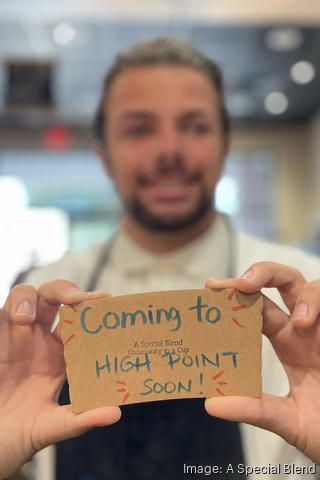 Coming to
A Special Blend
Community in a Cup
HIGH POINT
SOON!
Image: A Special Blend